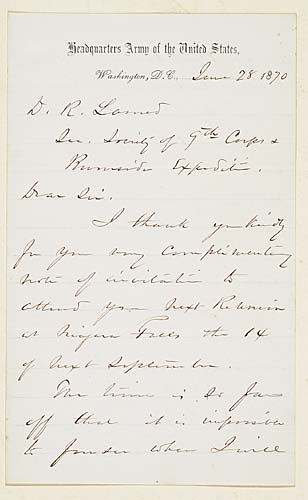 Headquarters Army of the United States,
Washington, D.C., June 28 1870
D. R. Larned
Sec. Society of 9th Corps &
Burnside Expeditn.
Dear Sir.
I thank you kindly
for your very complimentary
note of invitation to
attend your next Reunion
at Niagara Falls the 14
of next September.
The time is so far
off that it is impossible
to foresee where I will